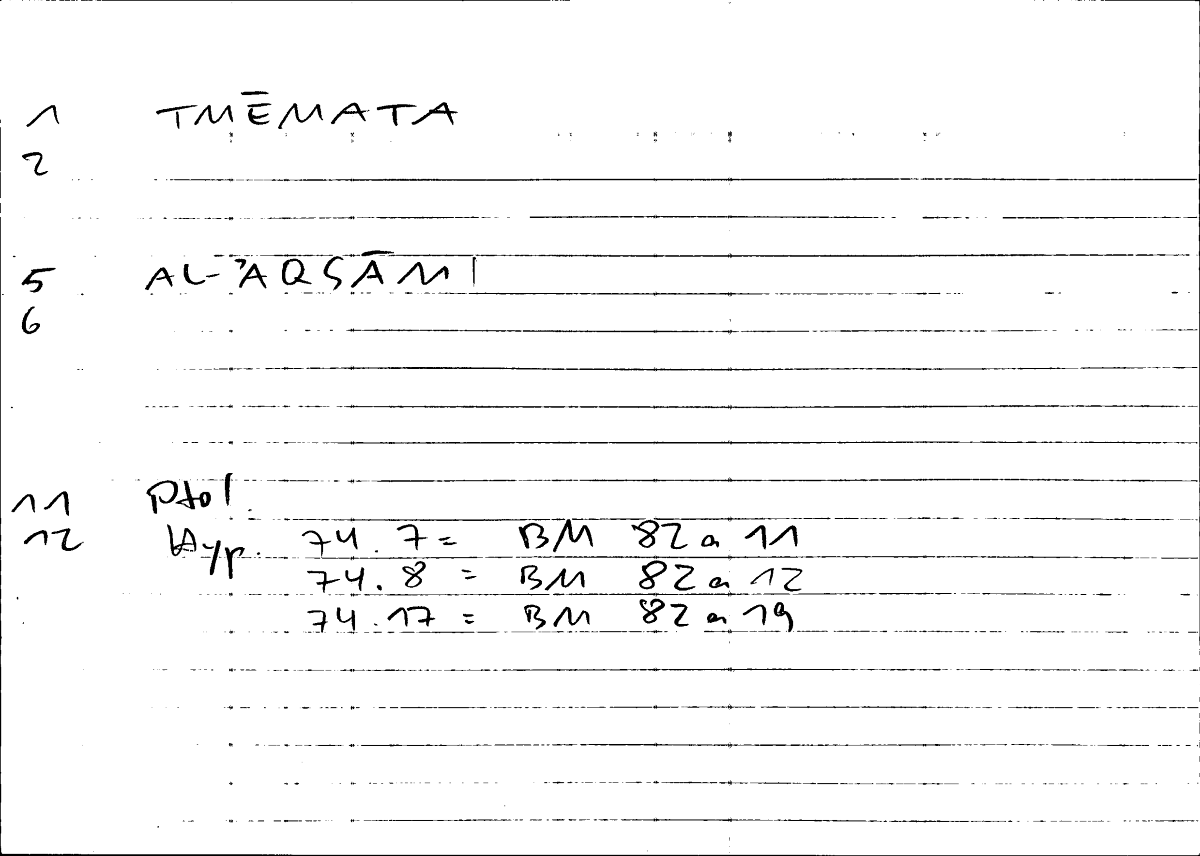 1 TMĒMATA
2
5 AL-ʾAQSĀM |
6
11 Ptol.
12 Hyp. 74.7 = BM 82 a 11
74.8 = BM 82 a 12
74.17 = BM 82 a 19